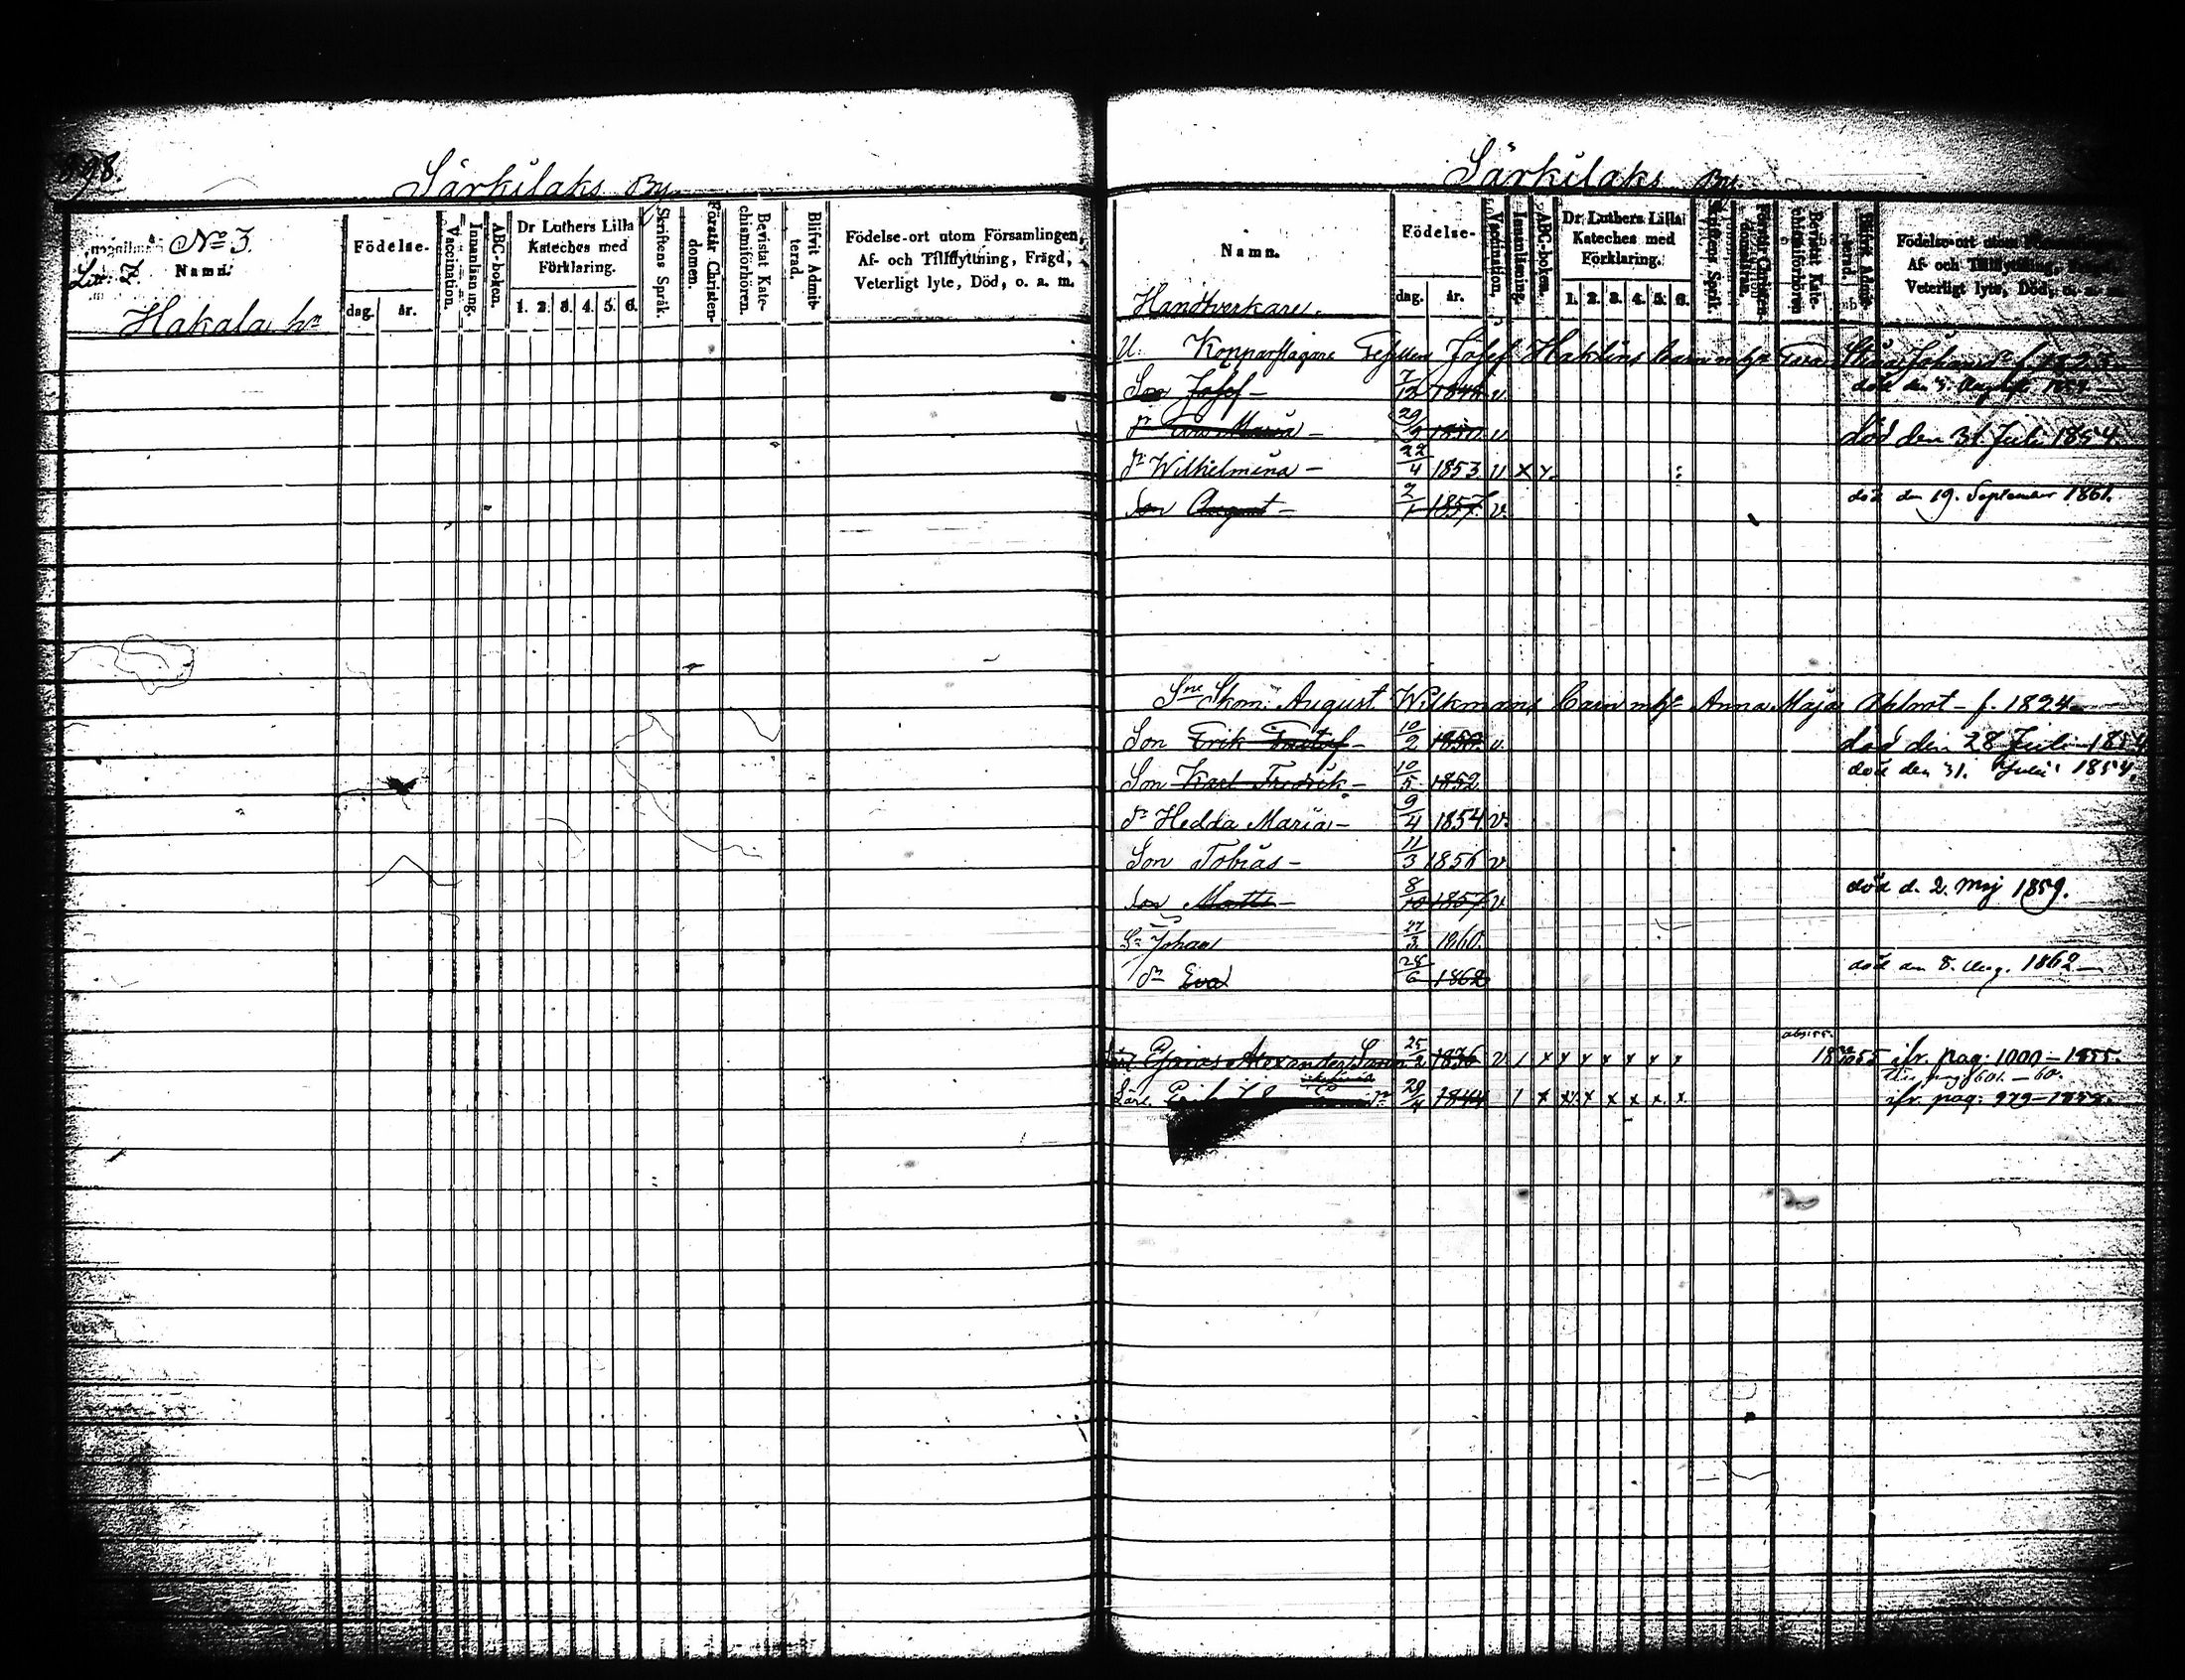 898.
Särkilaks By.
No 3.
Litt. Z. Namn.
Hakala hn
Födelse-
dag. år.
Vaccination.
Innanläsning.
ABC-boken.
Dr Luthers Lilla Kateches med Förklaring.
1. 2. 3. 4. 5. 6.
Skriftens Språk.
Förstår Christendomen.
Bevistat Katechismiförhören.
Blifvit Admitterad.
Födelse-ort utom Församlingen,
Af- och Tillflyttning, Frägd,
Veterligt lyte, Död, o. a. m.
Särkilaks By.
Namn.
Handtverkare.
Födelse-
dag. år.
Vaccination.
Innanläsning.
ABC-boken.
Dr Luthers Lilla Kateches med Förklaring.
1. 2. 3. 4. 5. 6.
Skriftens Språk.
Förstår Christendomen.
Bevistat Katechismiförhören
Blifvit Admitterad.
Födelse-ort utom
Af- och Tillflyttning,
Veterligt lyte, Död, o. a. m.
U. Kopparslagare Gesellen Josef barn mhn f. 1823.
Son Josef - 7/12 1848 v. död den 1854
Maria - 29 1850 v. död den 31 Juli 1854.
dr Wilhelmina - 22/4 1853. v. x x.
Son August - 2/1 1857 v. död den 19. September 1861.
Sne Skom. August Wilkmans barn mhn Anna Maja Ahlrot - f. 1824
Son Erik Gustaf - 10/2 1850. v. död den 28 Juli 1854
Son Karl Fredrik - 10/5 1852. död den 31. Juli 1854.
dr Hedda Maria - 9/4 1854. v.
Son Tobias - 11/3 1856 v.
Son Matts - 8/10 1857 v. död d. 2. Maj 1859.
Sn Johan 27/3. 1860.
dr Eva 28/6 1862 död den 8. Aug. 1862
Alexander 25/2 1836 v / x x x x x x x 1855 ifr. pag: 1000 - 1855.
601. - 60.
Lärl. 29/4 1844 / x x x x x x. x. ifr. pag: 979 -